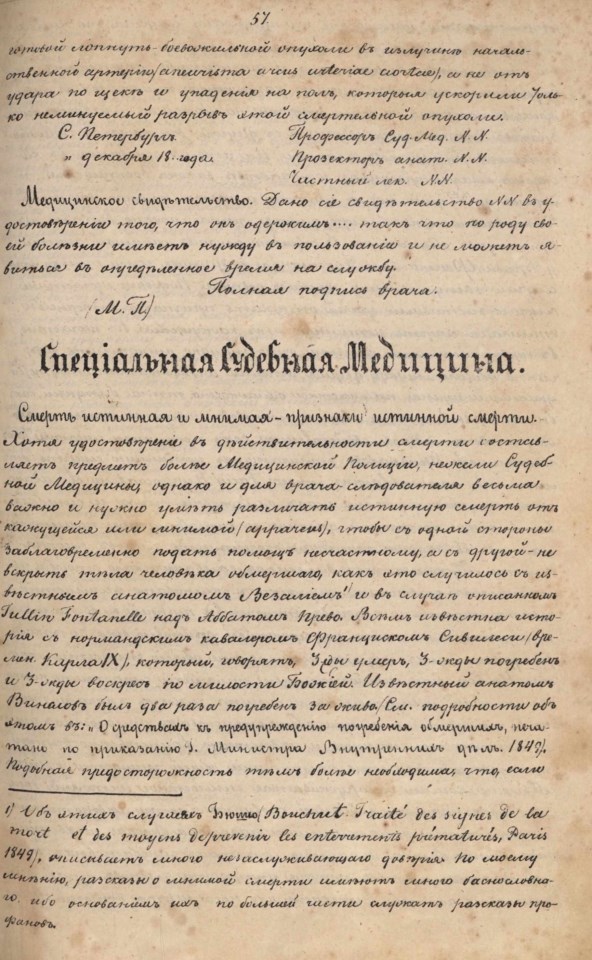 57.
готовой лопнуть боевожильной опухоли въ излучинѣ началь-
ственной артеріи (aneurisma arcus arteriae aortae), а не отъ
удара по щекѣ и упаденія на полъ, которыя ускорили толь-
ко неминуемый разрывъ этой смертельной опухоли.
С. Петербургъ. Профессоръ Суд. Мед. N. N.
„ декабря 18. года. Прозекторъ анат. N. N.
Частный лек. N.N.
Медицинское свидѣтельство. Дано сіе свидѣтельство NN въ у-
достовѣреніи того, что онъ одержимъ.... такъ что по роду сво-
ей болѣзни имѣетъ нужду въ пользованіи и не можетъ я-
виться въ опредѣленное время на службу.
Полная подпись врача.
(М. П.)
Спеціальная Судебная Медицина.
Смерть истинная и мнимая - признаки истинной смерти.
Хотя удостовѣреніе въ дѣйствительности смерти состав-
ляетъ предметъ болѣе Медицинской Полиціи, нежели Судеб-
ной Медицины, однако и для врача-слѣдователя весьма
важно и нужно умѣть различать истинную смерть отъ
кажущейся или мнимой (apparens), чтобы съ одной стороны
заблаговременно подать помощь несчастному, а съ другой - не
вскрыть тѣла человѣка обмершаго, какъ это случилось съ из-
вѣстнымъ анатомомъ Везаліемъ¹⁾ и въ случаѣ описанномъ
Tullin Fontanelle надъ Аббатомъ Прево. Всѣмъ извѣстна исто-
рія съ нормандскимъ кавалеромъ Францискомъ Сивилеги (вре-
мен. Карла IX), который, говорятъ, 3жды умеръ, 3-жды погребенъ
и 3-жды воскресъ по милости Божіей. Извѣстный анатомъ
Винсловъ былъ два раза погребенъ заживо (См. подробности объ
этомъ въ: „О средствахъ къ предупрежденію погребенія обмершихъ, печа-
тано по приказанію г. Министра Внутреннихъ дѣлъ. 1847).
Подобная предосторожность тѣмъ болѣе необходима, что, если
¹⁾ Объ этихъ случаяхъ Бюшю (Bouchut. Traité des signes de la
mort et des moyens de prevenir les enterrements prématurés, Paris
1849), описываетъ много незаслуживающаго довѣрія. По моему
мнѣнію, разсказы о мнимой смерти имѣютъ много баснословна-
го, ибо основаніемъ ихъ по большей части служатъ разсказы про-
фановъ.